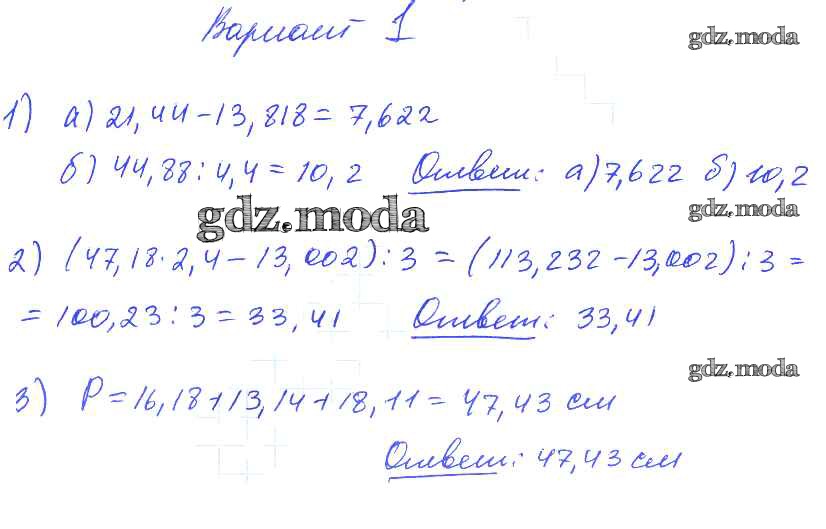 Вариант 1
gdz.moda
1) а) 21,44-13,818=7,622
б) 44,88:4,4=10,2 Ответ: а)7,622 б)10,2
gdz.moda
gdz.moda
2) (47,18·2,4-13,002):3=(113,232-13,002):3=
=100,23:3=33,41 Ответ: 33,41
gdz.moda
3) P=16,18+13,14+18,11=47,43 см
Ответ: 47,43 см